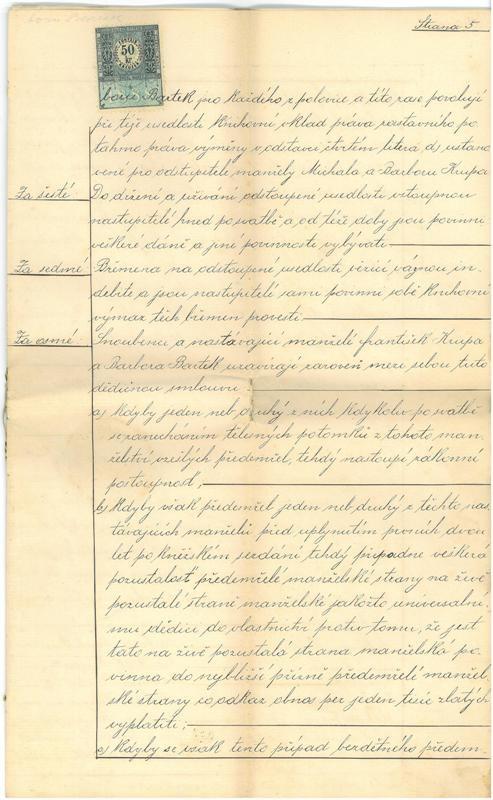 Strana 5
50
kr
bora Bartek pro každého z polovice, a títo zase povolují
při téže usedlosti knihovní vklad práva zástavního po-
tahmo práva výměny v odstavci čtvrtém litera d, ustano
vené pro odstupitele manžely Michala a Barboru Krupa
Za šesté
Do držení a užívání odstoupené usedlosti vstoupnou
nastupitelé hned po svatbě a od téže doby jsou povinni
veškeré daně a jiné povinnosti vybývati
Za sedmé
Břemena na odstoupené usedlosti vězící váznou in-
debite a jsou nastupitelé sami povinni sobě knihovní
výmaz těch břemen provésti
Za osmé:
Snoubenci a nastávající manželé František Krupa
a Barbora Bartek uzavírají zároveň mezi sebou tuto
dědičnou smlouvu:
a) Kdyby jeden neb druhý z nich kdykoliv po svatbě
se zanecháním tělesných potomků z tohoto man-
želství vzešlých předemřel, tehdy nastoupí zákonní
postoupnost;
b) Kdyby však předemřel jeden neb druhý z těchto nas-
távajících manželů před uplynutím prvních dvou
let po kněžském sezdání tehdy připadne veškerá
pozustalosť předemřelé manželské strany na živě
pozustalé straně manželské jakožto universalní-
mu dědici do vlastnictví proti tomu, že jest
tato na živě pozustalá strana manželská po-
vinna do nejbližší přízně předemřelé manžel-
ské strany co odkaz obnos per jeden tisíc zlatých
vyplatiti;
c) Kdyby se však tento případ bezdětného předem-